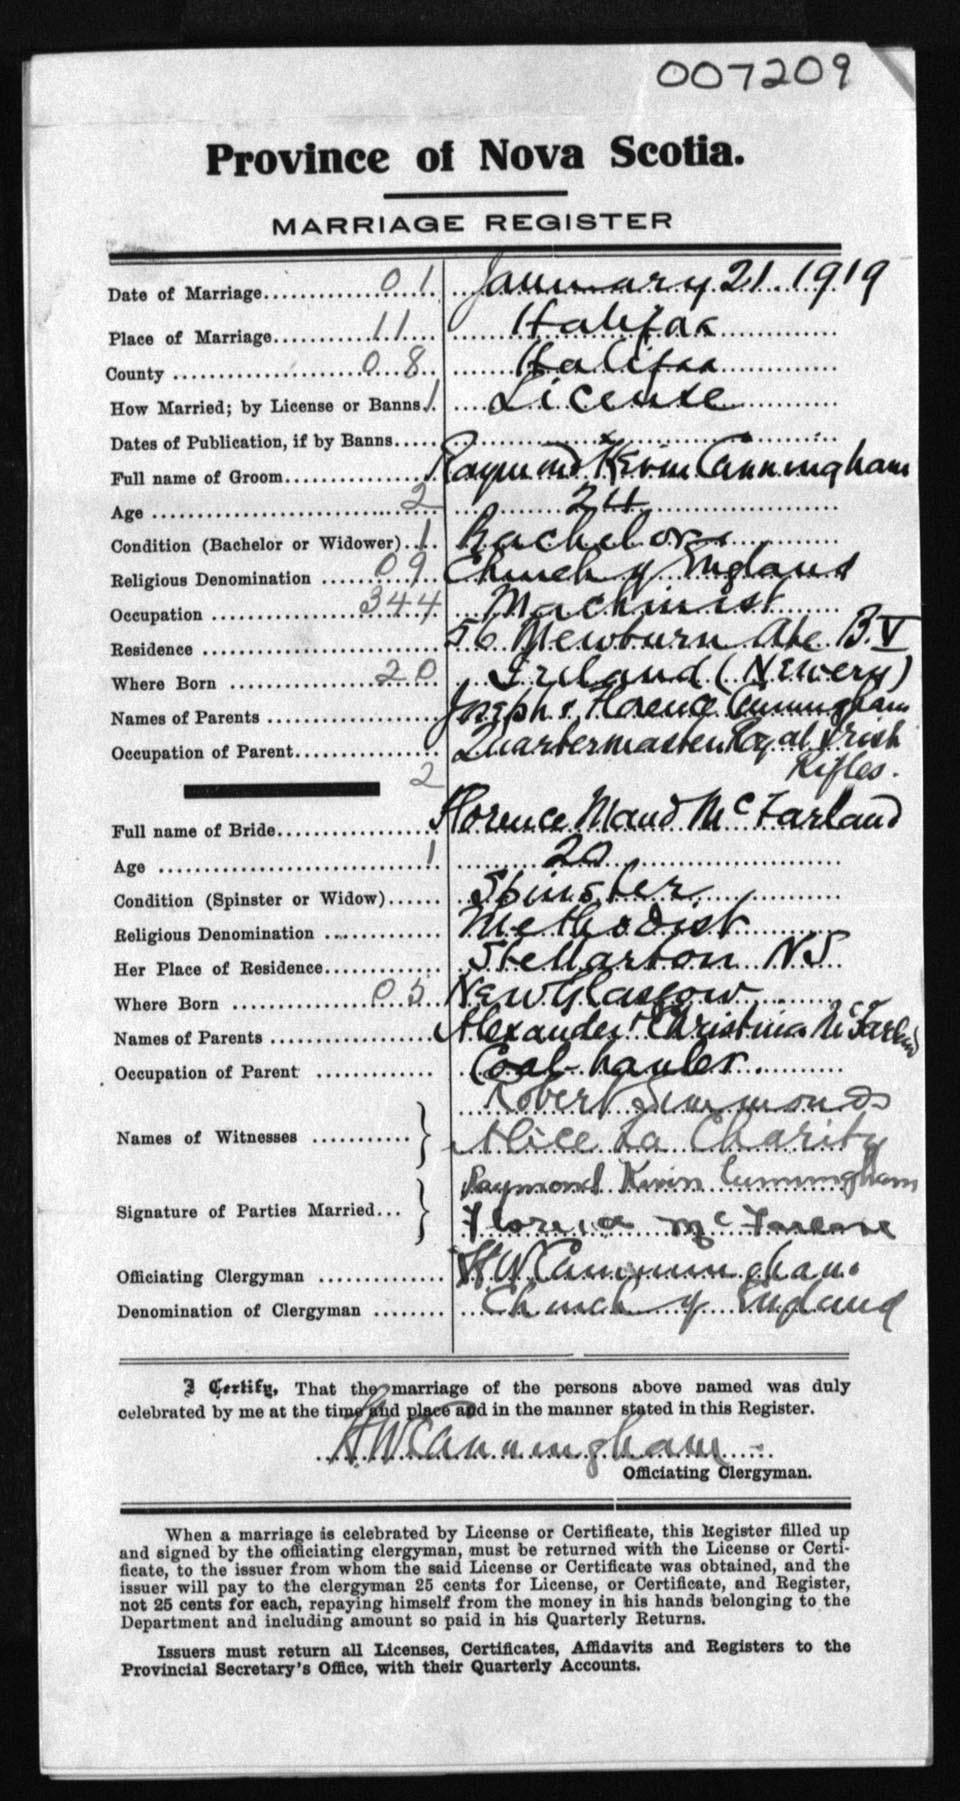 007209
Province of Nova Scotia.
MARRIAGE REGISTER
Date of Marriage 01 January 21. 1919
Place of Marriage 11 Halifax
County 08 Halifax
How Married; by License or Banns 1 License
Dates of Publication, if by Banns
Full name of Groom Raymond Kevin Cunningham
Age 2 24
Condition (Bachelor or Widower) 1 Bachelor
Religious Denomination 09 Church of England
Occupation 344 Machinist
Residence 56 Newburn Ave B.V
Where Born 20 Ireland (Newery)
Names of Parents Joseph & Florence Cunningham
Occupation of Parent Quartermaster Royal Irish
2 Rifles.
Full name of Bride Florence Maud McFarland
Age 1 20
Condition (Spinster or Widow) Spinster
Religious Denomination Methodist
Her Place of Residence Stellarton NS
Where Born 05 New Glasgow
Names of Parents Alexander & Christina McFarland
Occupation of Parent Coal hauler.
Robert Simmonds
Names of Witnesses Alice La Charity
Raymond Kevin Cunningham
Signature of Parties Married Florence McFarlane
Officiating Clergyman H W Cunningham.
Denomination of Clergyman Church of England
I Certify, That the marriage of the persons above named was duly
celebrated by me at the time and place and in the manner stated in this Register.
H W Cunningham
Officiating Clergyman.
When a marriage is celebrated by License or Certificate, this Register filled up
and signed by the officiating clergyman, must be returned with the License or Certi-
ficate, to the issuer from whom the said License or Certificate was obtained, and the
issuer will pay to the clergyman 25 cents for License, or Certificate, and Register,
not 25 cents for each, repaying himself from the money in his hands belonging to the
Department and including amount so paid in his Quarterly Returns.
Issuers must return all Licenses, Certificates, Affidavits and Registers to the
Provincial Secretary's Office, with their Quarterly Accounts.